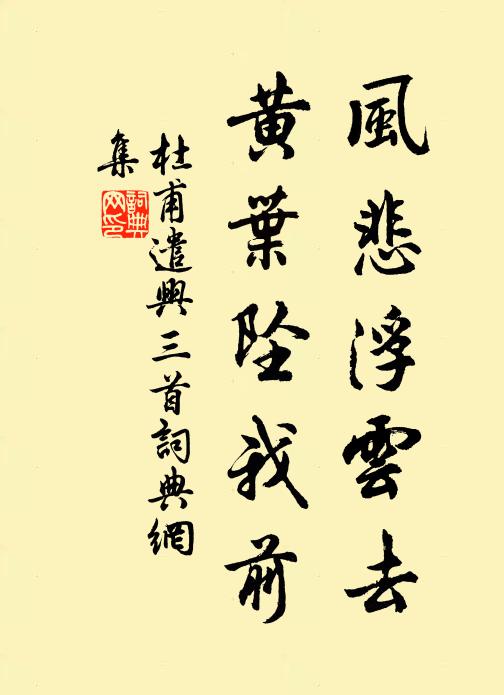 風悲浮雲去
黄葉坠我前
杜甫遣興三首詞典網
集
詞典
网印